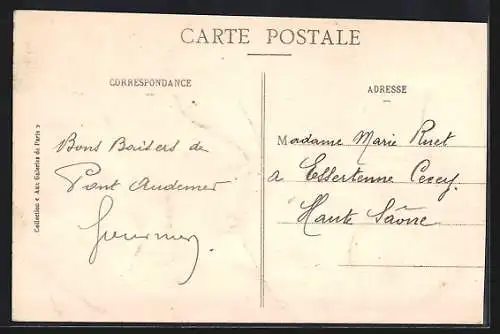 CARTE POSTALE
CORRESPONDANCE
Bons Baisers de
Pont Audemer
ADRESSE
Madame Marie
a Essertenne Cecey
Haute Saône
Collection « Aux Galeries de Paris »